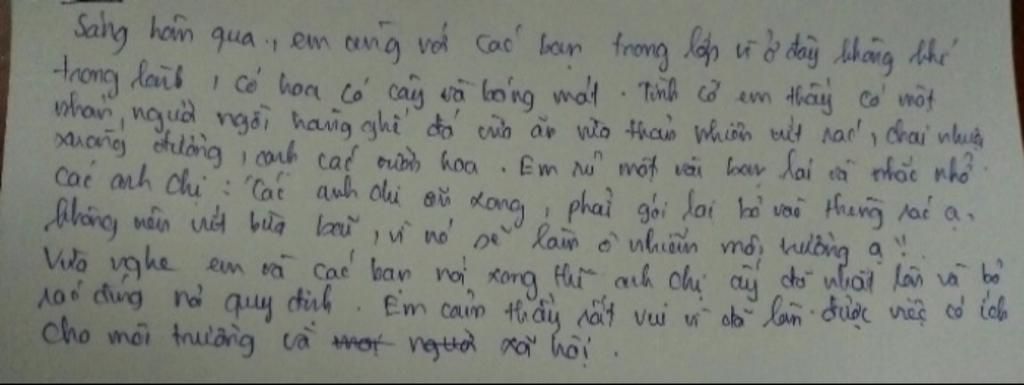 Sáng hôm qua, em cùng với các bạn trong lớp vì ở đây không khí
trong lành, có hoa có cây và bóng mát. Tình cờ em thấy có một
nhóm, người ngồi hàng ghế đá vừa ăn vừa thản nhiên vứt rác, chai nhựa
xuống đường, cạnh các vườn hoa. Em rủ một vài bạn lại và nhắc nhở
các anh chị: "Các anh chị ăn xong, phải gói lại bỏ vào thùng rác ạ.
Không nên vứt bừa bãi, vì nó sẽ làm ô nhiễm môi trường ạ"!
Vừa nghe em và các bạn nói xong thì anh chị ấy đã nhặt lên và bỏ
rác đúng nơi quy định. Em cảm thấy rất vui vì đã làm được việc có ích
cho môi trường và xã hội.